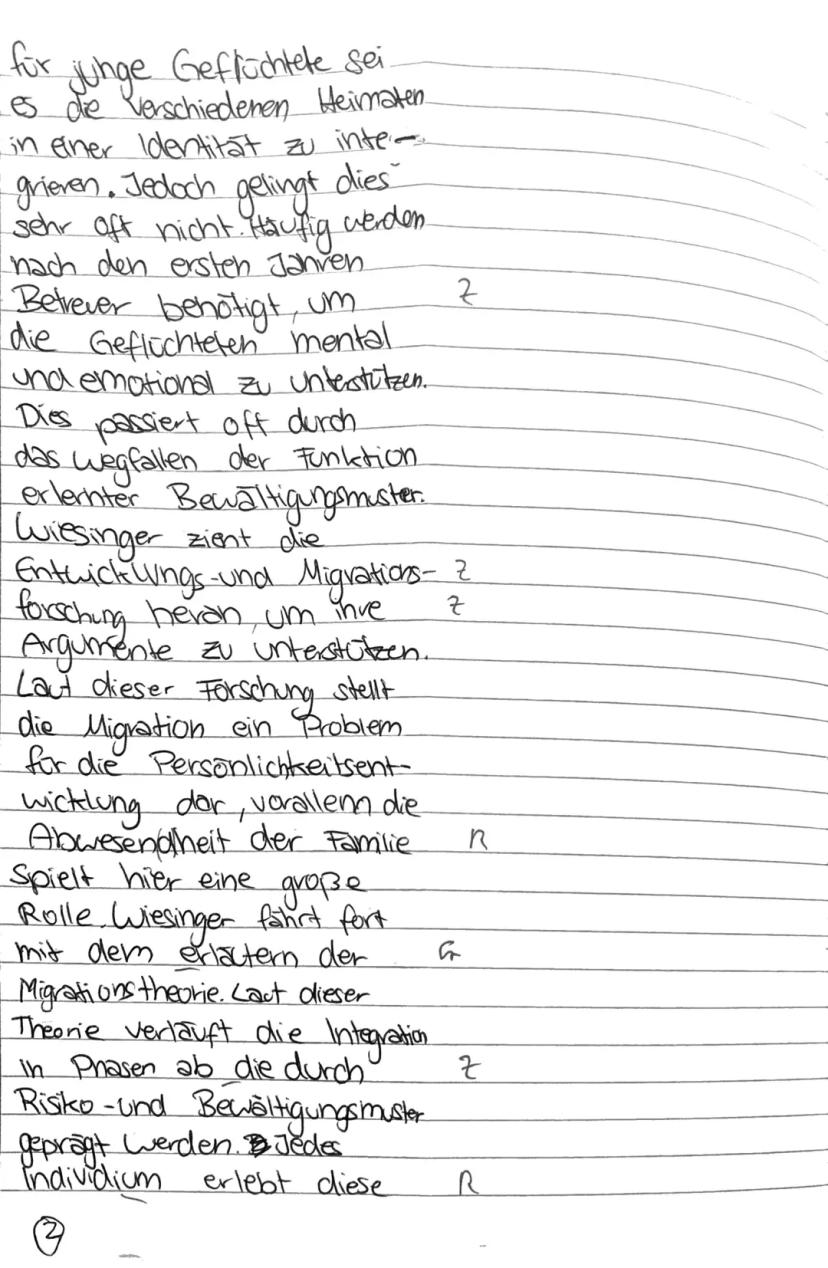 für junge Geflüchtete sei
es die verschiedenen Heimaten
in einer Identität zu inte-
grieren. Jedoch gelingt dies
sehr oft nicht. Häufig werden
nach den ersten Jahren
Betreuer benötigt, um Z
die Geflüchteten mental
und emotional zu unterstützen.
Dies passiert oft durch
das Wegfallen der Funktion
erlernter Bewältigungsmuster.
Wiesinger zieht die
Entwicklungs-und Migrations- Z
forschung heran, um ihre Z
Argumente zu unterstützen.
Laut dieser Forschung stellt
die Migration ein Problem
für die Persönlichkeitsent-
wicklung dar, vorallem die
Abwesendheit der Familie R
spielt hier eine große
Rolle. Wiesinger fährt fort
mit dem erläutern der G
Migrationstheorie. Laut dieser
Theorie verläuft die Integration
in Phasen ab die durch Z
Risiko-und Bewältigungsmuster
geprägt werden. Jedes
Individium erlebt diese R
2